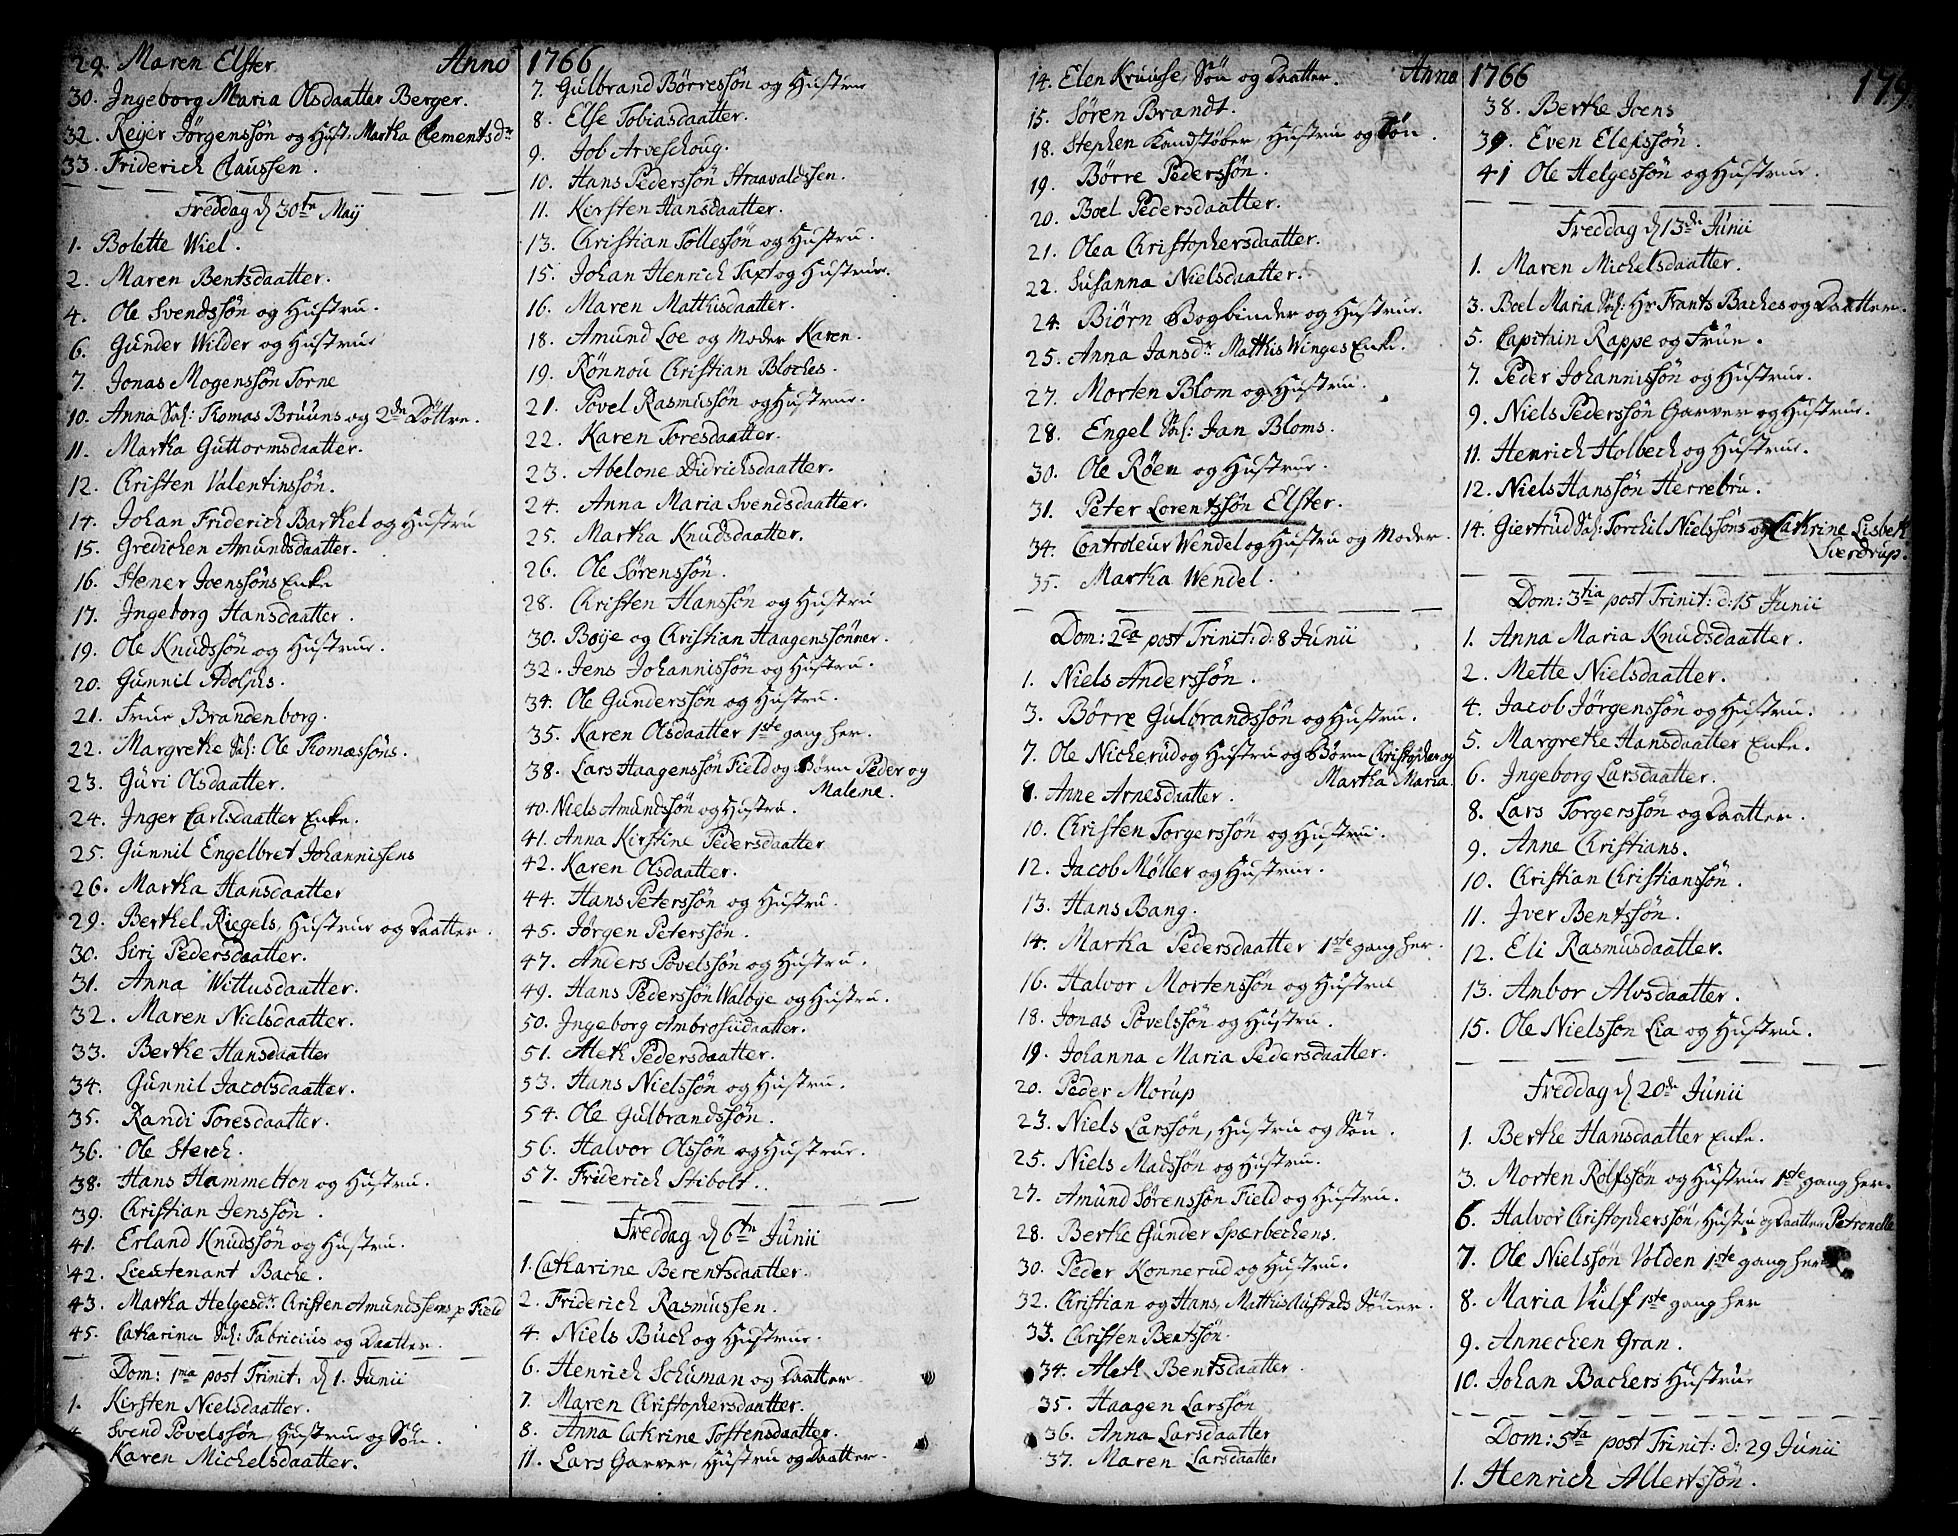 Anno 1766
29. Maren Elster
30. Ingeborg Maria Olsdaatter Berger.
32. Reijer Jörgenssön og Hust. Martha Clementsdr
33. Friderich Claussen.
Freddag d 30te Maij
1. Bolette Wiel.
2. Maren Bentsdaatter.
4. Ole Svendssön og Hustru.
6. Gunder Wilder og Hustrue
7. Jonas Mogenssön Torne
10. Anna Sal: Thomas Bruuns og 2de Döttre.
11. Martha Guttormsdaatter.
12. Christen Valentinssön.
14. Johan Friderich Barthel og Hustru
15. Gredichen Amundsdaatter.
16. Stener Joenssöns Enke
17. Ingeborg Hansdaatter.
19. Ole Knudssön og Hustrue.
20. Gunnil Adolphs.
21. Frue Brandenborg.
22. Margrethe Sal: Ole Thomassöns.
23. Guri Olsdaatter.
24. Inger Carlsdaatter Enke.
25. Gunnil Engelbret Johannissens
26. Martha Hansdaatter
29. Berthel Riegels, Hustrue og Daatter.
30. Siri Pedersdaatter.
31. Anna Wittusdaatter.
32. Maren Nielsdaatter.
33. Berthe Hansdaatter
34. Gunnil Jacobsdaatter.
35. Randi Toresdaatter.
36. Ole Sterch.
38. Hans Hammelton og Hustru.
39. Christian Jenssön.
41. Erland Knudssön og Hustru.
42. Lieutenant Bache.
43. Martha Helgesdr. Christen Amundssens p Field
45. Catharina Sal: Fabricius og Daatter.
Dom: 1ma post Trinit. d 1. Junii
1. Kirsten Nielsdaatter.
Svend Povelssön, Hustrue og Sön.
Karen Michelsdaatter.
7. Gulbrand Börressön og Hustrue
8. Else Tobiasdaatter.
9. Job Arveschoug.
10. Hans Pederssön Straavaldssen.
11. Kirsten Hansdaatter.
13. Christian Tollessön og Hustru.
15. Johan Henrich Taxt og Hustrue.
16. Maren Matthisdaatter.
18. Amund Loe og Moder Karen.
19. Rönnou Christian Bloches.
21. Povel Rasmussön og Hustrue.
22. Karen Toresdaatter.
23. Abelone Didrichsdaatter.
24. Anna Maria Svendsdaatter.
25. Martha Knudsdaatter.
26. Ole Sörenssön.
28. Christen Hanssön og Hustru
30. Boije og Christian Haagenssönner.
32. Jens Johannissön og Hustru.
34. Ole Gunderssön og Hustru.
35. Karen Olsdaatter 1ste gang her.
38. Lars Haagenssön Field og Börn Peder og
Malene.
40. Niels Amundssön og Hustru.
41. Anna Kirstine Pedersdaatter
42. Karen Olsdaatter.
44. Hans Peterssön og Hustru.
45. Jörgen Peterssön.
47. Anders Povelssön og Hustru.
49. Hans Pederssön Walbye og Hustru.
50. Ingeborg Ambrosiidaatter.
51. Aleth Pedersdaatter.
53. Hans Nielssön og Hustru.
54. Ole Gulbrandssön.
56. Halvor Olssön og Hustrue.
57. Friderich Stibolt.
Freddag d 6te Junii
1. Catharine Berentsdaatter.
2. Friderich Rasmussen.
4. Niels Buch og Hustrue.
6. Henrich Schuman og Daatter
7. Maren Christophersdaatter.
8. Anna Cathrine Tostensdaatter.
11. Lars Garver, Hustru og Daatter.
Anno 1766
179
14. Elen Kruuse, Sön og Daatter.
15. Sören Brandt.
18. Stephen Kandstöber, Hustru og Sön.
19. Börre Pederssön.
20. Boel Pedersdaatter.
21. Olea Christophersdaatter.
22. Susanna Nielsdaatter.
24. Biörn Bogbinder og Hustrue.
25. Anna Jansdr. Matthis Winges Enke.
27. Morten Blom og Hustru.
28. Engel Sal: Jan Bloms.
30. Ole Röen og Hustrue.
31. Peter Lorentssön Elster.
34. Controleur Wendel og Hustru og Moder.
35. Martha Wendel.
Dom: 2da post Trinit: d: 8 Junii
1. Niels Anderssön.
3. Börre Gulbrandssön og Hustru.
7. Ole Nicherud og Hustru og Börn Christopher og
Martha Maria.
8. Anne Arnesdaatter.
10. Christen Torgerssön og Hustru.
12. Jacob Møller og Hustrue.
13. Hans Bang.
14. Martha Pedersdaatter 1ste gang her.
16. Halvor Mortenssön og Hustru
18. Jonas Povelssön og Hustru.
19. Johanna Maria Pedersdaatter.
20. Peder Morup
23. Niels Larssön, Hustru og Sön.
25. Niels Madssön og Hustru.
27. Amund Sörenssön Field og Hustru.
28. Berthe Gunder Spærbechens.
30. Peder Konnerud og Hustru.
32. Christian og Hans, Mathis Austads Sönner.
33. Christen Bentssön.
34. Aleth Bentsdaatter.
35. Haagen Larssön
36. Anna Larsdaatter
37. Maren Larsdaatter
38. Berthe Joens
39. Even Elefssön.
41 Ole Helgessön og Hustrue.
Freddag d 13de Junii
1. Maren Michelsdaatter.
3. Boel Maria Sal: Hr Frants Baches og Daatter.
5. Capitain Rappe og Frue.
7. Peder Johannissön og Hustrue.
9. Niels Pederssön Garver og Hustrue.
11. Henrich Holbech og Hustrue.
12. Niels Hanssön Herrebru.
14. Giertrud Sal: Torchil Nielssöns og Cathrine Lisbeth
Sverdrup.
Dom: 3tia post Trinit: d: 15 Junii
1. Anna Maria Knudsdaatter.
2. Mette Nielsdaatter.
4. Jacob Jörgenssön og Hustru.
5. Margrethe Hansdaatter Enke.
6. Ingeborg Larsdaatter.
8. Lars Torgerssön og Daatter.
9. Anne Christians.
10. Christian Christianssön.
11. Iver Bentssön.
12. Eli Rasmusdaatter.
13. Ambor Alvsdaatter.
15. Ole Nielssön Lia og Hustru.
Freddag d 20de Junii
1. Berthe Hansdaatter Enke.
3. Morten Rolfssön og Hustrue 1ste gang her.
6. Halvor Christopherssön, Hustru og Daatter Petronelle
7. Ole Nielssön Volden 1ste gang her
8. Maria Vulf 1ste gang her
9. Annechen Gran.
10. Johan Bachers Hustrue
Dom: 5ta post Trinit: d: 29 Junii
1. Henrich Allertssön.